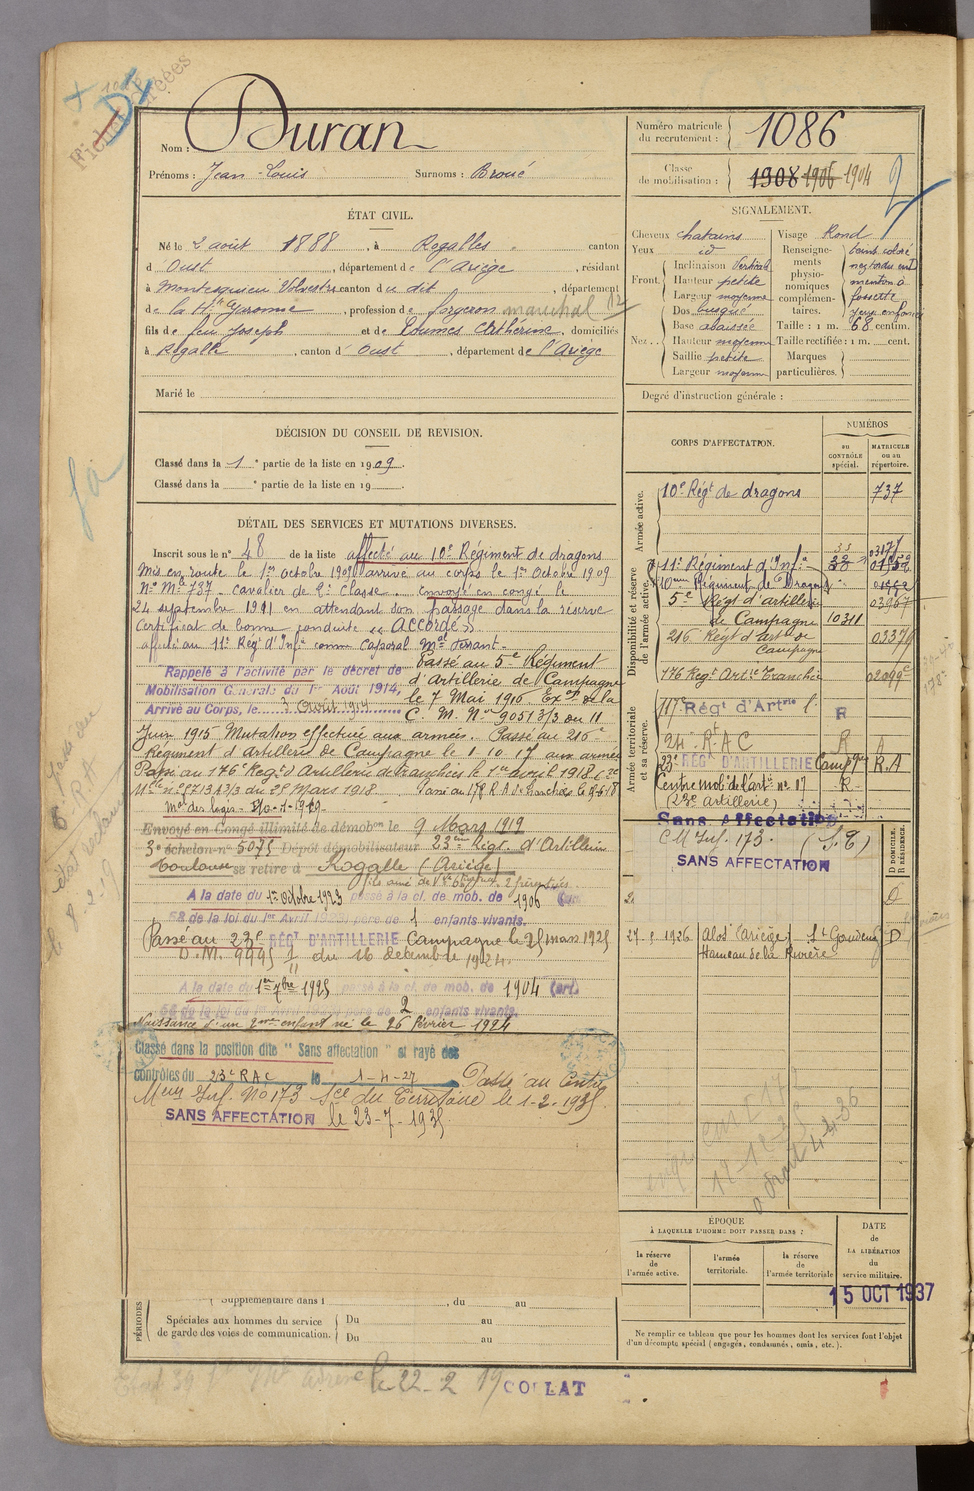 Nom : Duran
Prénoms : Jean-Louis Surnoms : Broué
Numéro matricule du recrutement : 1086
Classe de mobilisation : 1908 1906 1904
ÉTAT CIVIL.
Né le 2 août 1888, à Rogalles canton
d Oust, département de l'Ariège, résidant
à Montesquieu Volvestre canton du dit, département
de la Hte Garonne, profession de forgeron marechal
fils de feu Joseph et de Loumes Cathérine, domiciliés
à Rogalle, canton d'Oust, département de l'Ariège
Marié le
SIGNALEMENT.
Cheveux chatains
Yeux id
Front : Inclinaison Verticale
Hauteur petite
Largeur moyenne
Nez : Dos busqué
Base abaissée
Hauteur moyenne
Saillie petite
Largeur moyenne
Visage Rond
Renseignements physionomiques complémentaires. teint coloré
menton à
fossette
Taille : 1 m. 68 centim.
Taille rectifiée : 1 m. cent.
Marques particulières.
Degré d'instruction générale :
DÉCISION DU CONSEIL DE REVISION.
Classé dans la 1e partie de la liste en 1909.
Classé dans la e partie de la liste en 19
DÉTAIL DES SERVICES ET MUTATIONS DIVERSES.
Inscrit sous le n° 48 de la liste affecté au 10e Régiment de dragons
Mis en route le 1er octobre 1909 arrivé au corps le 1er Octobre 1909
No Mle 737. cavalier de 2e Classe. Envoyé en congé le
24 septembre 1911 en attendant son passage dans la réserve
Certificat de bonne conduite "Accordé"
affecté au 11e Régt d'Infie comme Caporal Mal ferrant
Rappelé à l'activité par le décret de
Mobilisation Générale du 1er Août 1914,
Arrivé au Corps, le 3 Août 1914
Passé au 5e Régiment
d'Artillerie de Campagne
le 7 Mai 1916 Exon de la
C. M. No 9051 3/3 du 11
Juin 1915 Mutation effectuée aux armées. Passé au 216e
Régiment d'Artillerie de Campagne le 1.10.17 aux armées
Passé au 176e Régt d'Artillerie de tranchées le 1er avril 1918
du 28 Mars 1918. Passé au 178 R.A. de tranchées le 9-6-18
Mal des logis
Envoyé en Congé illimité de démobon le 9 Mars 1919
3e échelon n° 5075 Dépôt démobilisateur 23ème Régt. d'Artillerie
Toulouse se retire à Rogalle (Ariège)
A la date du 1er Octobre 1923 passé à la cl. de mob. de 1906
58 de la loi du 1er Avril 1923) père de 1 enfants vivants.
Passé au 23e RÉGT D'ARTILLERIE Campagne le 25 mars 1925
D.M. 9995 du 16 décembre 1924.
A la date du 1er 7bre 1925 passé à la cl. de mob. de 1904 (art.
58 de la loi du père de 2 enfants vivants.
Naissance d'un 2me enfant né le 26 février 1924
Classé dans la position dite "Sans affectation" et rayé des
contrôles du 23e RAC le 1-4-27 Passé au Centre
Meur Inf. No 173 Sce du Territoire le 1-2-1935
SANS AFFECTATION le 23-7-1935
CORPS D'AFFECTATION.
NUMÉROS
au CONTRÔLE spécial.
MATRICULE ou au répertoire.
Armée active.
10e Régt de dragons 737
Disponibilité et réserve de l'armée active.
11e Régiment d'Infie
10eme Régiment de Dragons
5e Régt d'artillerie
de Campagne 10311
216e Régt d'art de
Campagne
176 Régt Artie Tranchée
Armée territoriale et sa réserve.
117e Régt d'Artrie l. R
24e R.A.C R A
23e RÉGT D'ARTILLERIE Campgne R.A
Centre mob. de l'artie n° 17 R
(23e Artillerie)
Sans Affectation
CM Inf. 173. (S.T.)
SANS AFFECTATION
D DOMICILE.
R RÉSIDENCE.
D
27.5.1926 Alos (Ariège) St Gaudens D
Hameau de la Rivière
ÉPOQUE
À LAQUELLE L'HOMME DOIT PASSER DANS :
la réserve de l'armée active.
l'armée territoriale.
la réserve de l'armée territoriale
DATE
de
LA LIBÉRATION
du
service militaire.
15 OCT 1937
PÉRIODES
Supplémentaire dans l , du au
Spéciales aux hommes du service
de garde des voies de communication.
Du au
Du au
Ne remplir ce tableau que pour les hommes dont les services font l'objet
d'un décompte spécial (engagés, condamnés, omis, etc.).
le 22-2 19
COLLAT